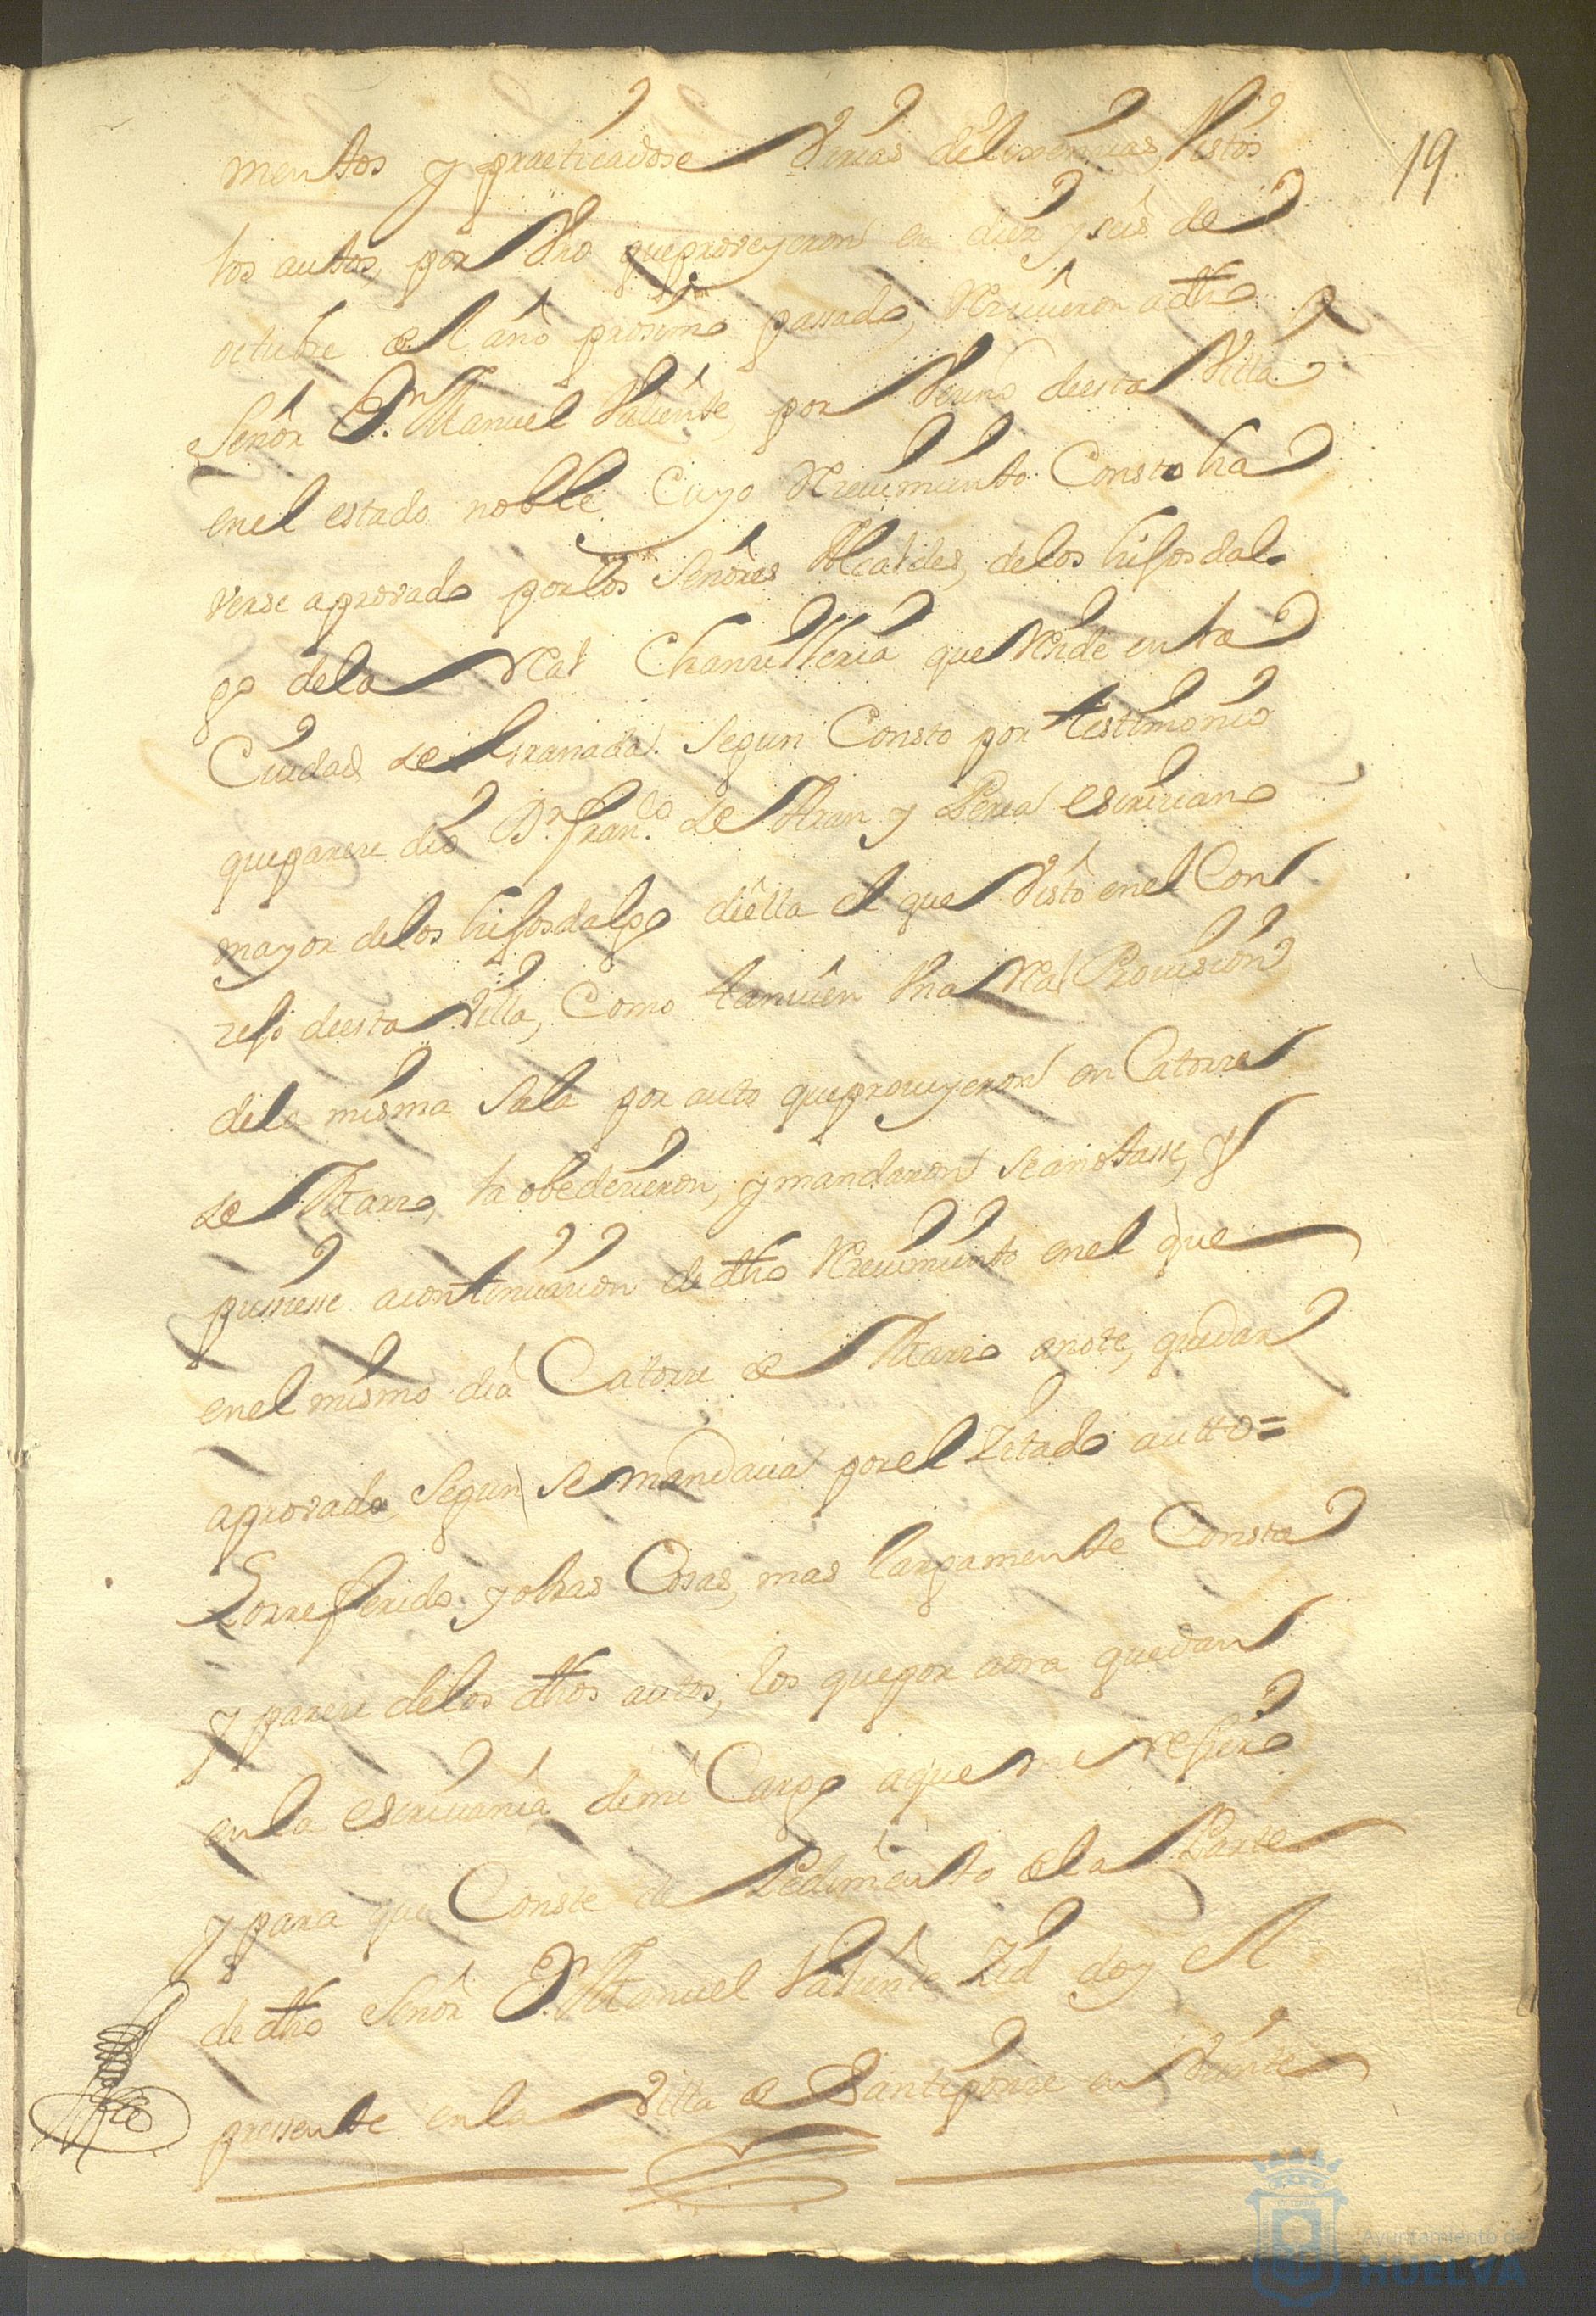 19
mentos y practicadose Varias delixencias, Vistos
los autos, por Vno queproveyeron en diez y seis de
octubre del año proximo passado, Reciuieron a dho
Señor Dn. Manuel Valiente, por Vecino deesta Villa
enel estado noble CuyoReciuimiento Consto ha
verse aprovado porlos Señores Alcaldes, delos hijosdal
go dela Real Chanzilleria que Reside en la
Ciudad de Granada. Segun Consto por testimonio
queparece dio Dn. Franco. de Aran y Perea escriviano
mayor delos hijosdalgo diella el que Visto enel Con
zejo deesta Villa, Como tanuien Vna Real Prouision
dela misma Sala por auto queproueyeron en Catorze
de Marzo, la obedecieron, y mandaron Se anotasse, y
pusiesse acontinuacion de dho Reciuimiento enel que
enel mismo dia Catorze de Marzo anote, quedar
aprovado Segun Se mandaua porel Zitado autto=
Lorreferido y otras Cosas, mas largamente Consta
y parece delos dhos autos, los quepor aora quedan
enla escriuania demi Cargo aque me refiero
y para que Conste de Pedimento dela Parte
de dho Señor Dn. Manuel Valiente Zid doy el
pressente enla Villa de Santiponze en Veinte
Ayuntamiento de
HUELVA